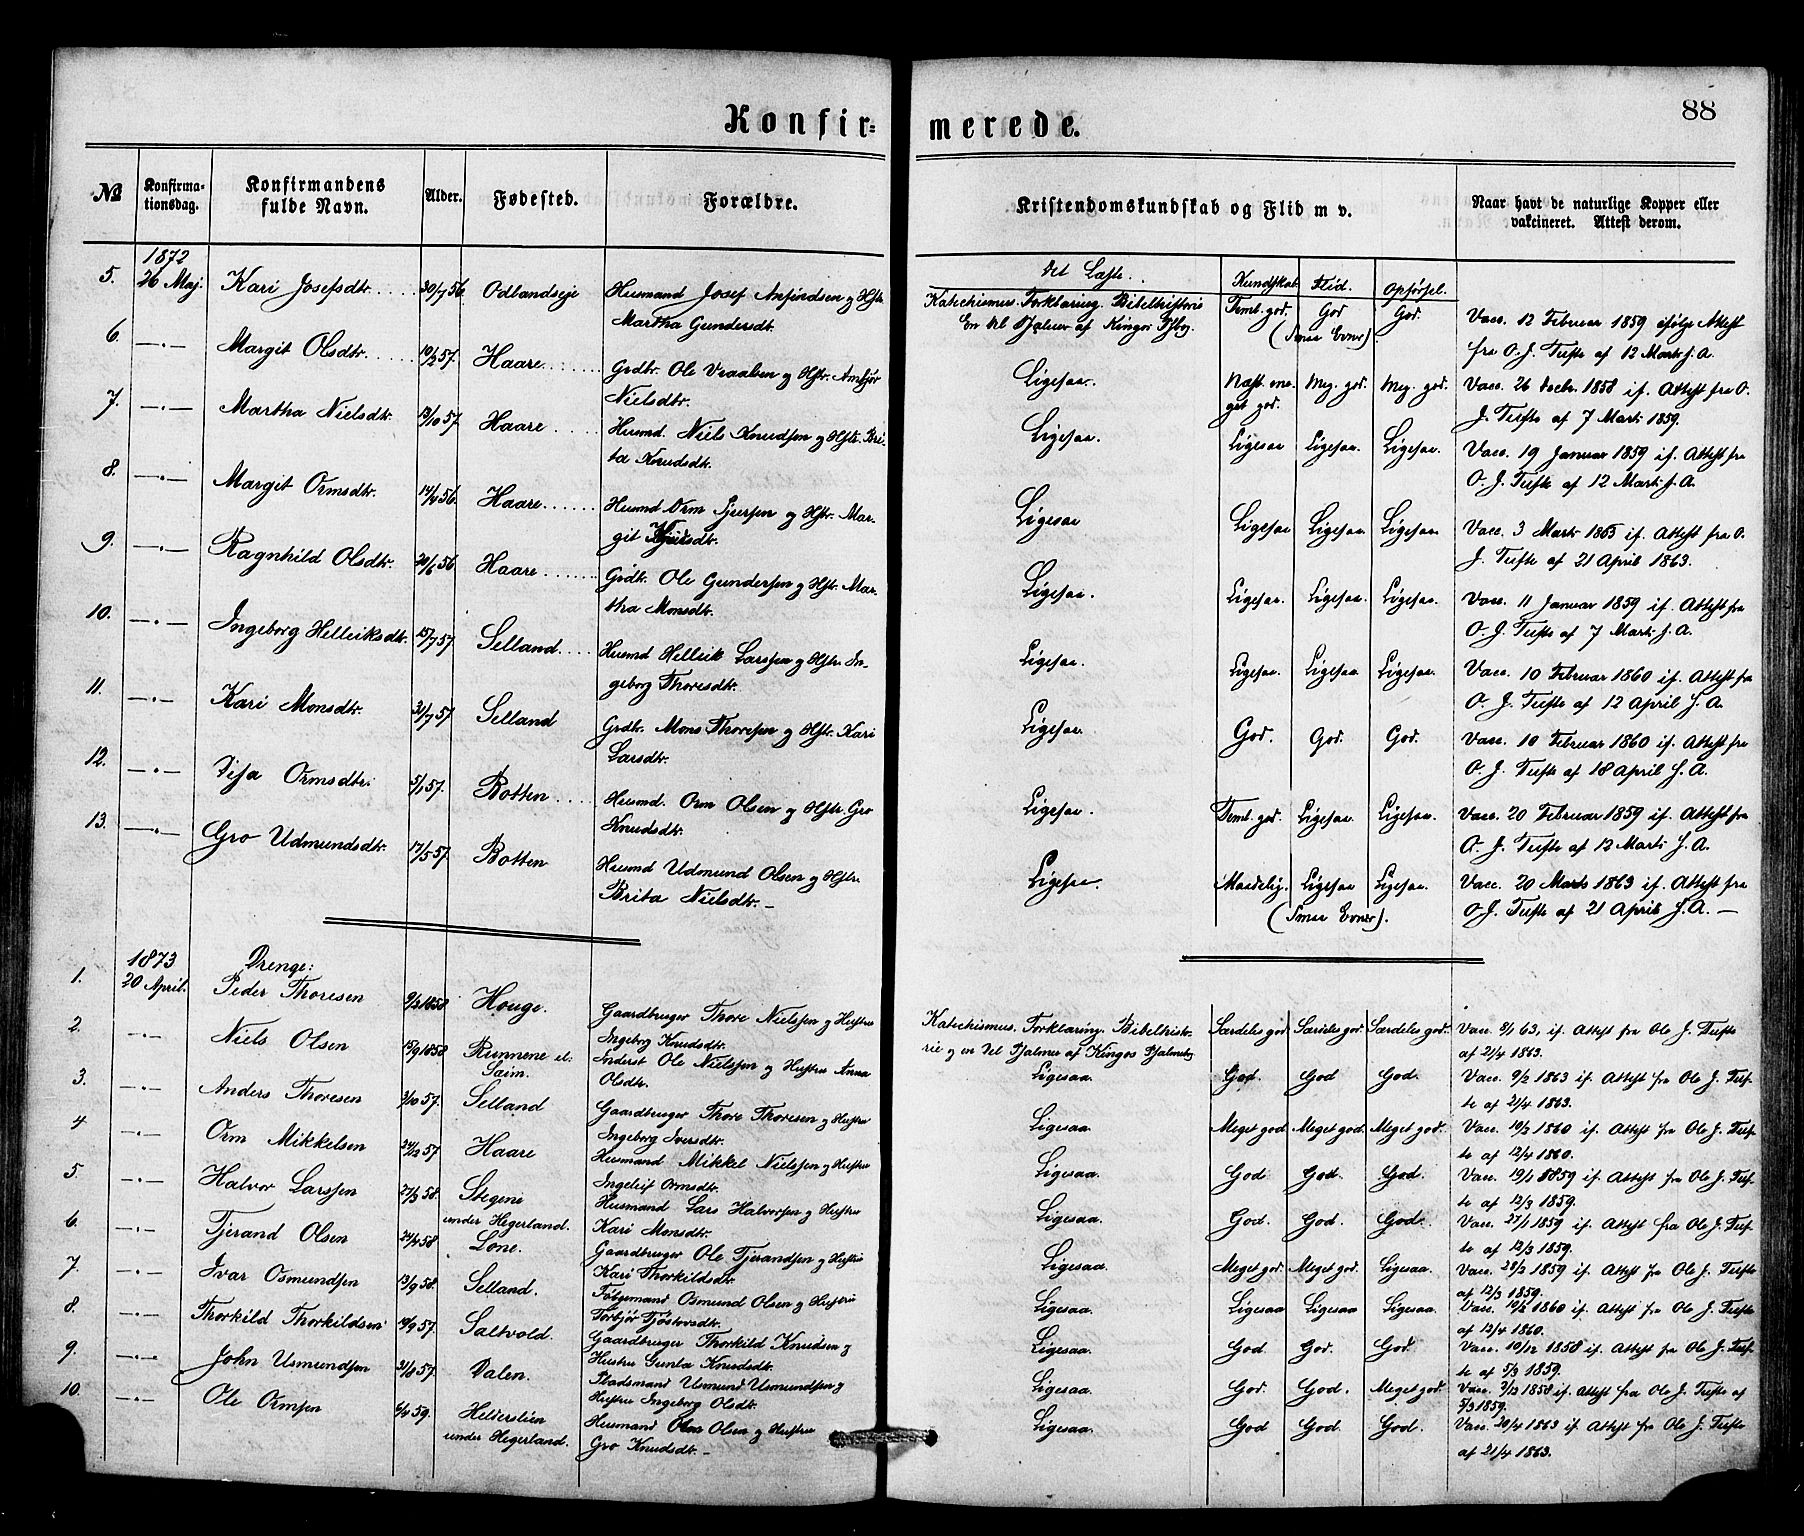 Konfir-
merede.
88
№
Konfirma-
tionsdag.
Konfirmandens
fulde Navn.
Alder.
Fødested.
Forældre.
Kristendomskundskab og Flid m v.
Naar havt de naturlige Kopper eller
vakcineret. Attest derom.
1872
det Læste. Kundskab Flid. Opførsel.
5. 26 Maj. Kari Josefsdtr. 30/7 56 Odlandseje Husmand Josef Anfindsen og Hstr.
Martha Gundersdt.
Katechismus. Forklaring. Bibelhistorie
En del Psalmer af Kingos Psbg. Teml. god. God God.
(Smaa Evner).
Vacc. 12 Februar 1859 ifølge Attest
fra O. J. Tufte af 12 Marts s. A.
6. —"— Margit Olsdtr. 10/2 57. Haare Grdbr. Ole Vraalsen og Hstr. Ambjør
Nielsdtr.
Ligesaa. Næst me-
get god. Meg. god. Meg. god.
Vacc. 26 Decbr. 1858 if. Attest fra O.
J. Tufte af 7 Marts 1859.
7. —"— Martha Nielsdtr. 13/10 57. Haare Husmd. Niels Knudsen og Hstr. Bri-
ta Knudsdtr.
Ligesaa. Ligesaa Ligesaa. Ligesaa.
Vacc. 19 Januar 1859 if. Attest fra
O. J. Tufte af 12 Marts s. A.
8. —"— Margit Ormsdtr. 14/4 56. Haare Husmd Orm og Hstr. Mar-
git
Ligesaa Ligesaa Ligesaa. Ligesaa.
Vacc. 3 Marts 1863 if. Attest fra O.
J. Tufte af 21 April 1863.
9. —"— Ragnhild Olsdtr. 20/6 56 Haare Grdbr. Ole Gundersen og Hstr. Mar-
tha Monsdtr.
Ligesaa. Ligesaa. Ligesaa. Ligesaa.
Vacc. 11 Januar 1859 if. Attest fra
O. J. Tufte af 7 Marts s. A.
10. —"— Ingeborg Helleiksdtr. 15/7 57. Selland Husmd Helleik Larssen og Hstr. In-
geborg Thoresdtr.
Ligesaa. Ligesaa. Ligesaa. Ligesaa.
Vacc. 10 Februar 1860 if. Attest fra
O. J. Tufte af 12 April s. A.
11. —"— Kari Monsdtr. 31/7 57. Selland Grdbr. Mons Thoresen og Hstr. Kari
Larsdtr.
Ligesaa. God. God. God.
Vacc. 10 Februar 1860 if. Attest fra
O. J. Tufte af 18 April s. A.
12. —"— Visa Ormsdtr. 5/1 57. Botten Husmd. Orm Olsen og Hstr. Gro
Knudsdtr.
Ligesaa. Teml. god. Ligesaa. Ligesaa.
Vacc. 20 Februar 1859 if. Attest fra
O. J. Tufte af 12 Marts s. A.
13. —"— Gro Udmundsdtr. 17/5 57. Botten Husmd Udmund Olsen og Hstr.
Brita Nielsdtr. —
Ligesaa. Maadelig. Ligesaa Ligesaa.
(Smaa Evner).
Vacc. 20 Marts 1863 if. Attest fra
O. J. Tufte af 21 April s. A. —
1873 Drenge:
1. 20 April. Peder Thoresen 9/2 1858 Houge. Gaardbruger Thore Nielssen og Hustru
Ingeborg Knudsdtr.
Katechismus. Forklaring. Bibelhisto-
rie og en Del Psalmer af Kingos Psalmebg Særdeles god Særdeles god. Særdeles god.
Vacc. 9/1 63, if. Attest fra Ole J. Tufte
af 21/4 1863.
2. —"— Niels Olsen 15/9 1858 Runnene el.
Saim. Inderst Ole Nielssen og Hustru Anna
Olsdtr.
Ligesaa. God. God God.
Vacc. 9/2 1863 if. Attest fra Ole J. Tuf-
te af 21/4 1863.
3. —"— Anders Thoresen 3/10 57. Selland Gaardbruger Thore Thoresen og Hustru
Ingeborg Iversdtr.
Ligesaa. Meget god Meget god. Meget god.
Vacc. 10/2 1860 if. Attest fra Ole J. Tuf-
te af 12/4 1860.
4 —"— Orm Mikkelsen 24/12 57 Haare Husmand Mikkel Nielssen og Hustru
Ingeleif Ormsdtr.
Ligesaa. God. God. God.
Vacc. 19/1 1859 if. Attest fra Ole J. Tuf-
te af 12/3 1859.
5. —"— Halvor Larssen 27/3 58. Stegene
under Hegerland. Husmand Lars Halvorsen og Hustru
Kari Monsdtr.
Ligesaa. God. God. God.
Vacc. 27/1 1859 if. Attest fra Ole J. Tuf-
te af 12/3 1859.
6. —"— Tjerand Olsen 24/4 58 Lone. Gaardbruger Ole Tjerandsen og Hustru
Kari Thorkildsdtr.
Ligesaa. Meget god. Meget god. Ligesaa.
Vacc. 28/2 1859 if. Attest fra Ole J. Tufte
af 12/3 1859.
7. —"— Ivar Osmundsen 13/9 58. Selland. Følgemand Osmund Olsen og Hustru
Torbjør Tjøstovsdtr.
Ligesaa Ligesaa Ligesaa Ligesaa.
Vacc. 10/2 1860 if. Attest fra Ole J. Tufte
af 12/4 1860.
8. —"— Thorkild Thorkildsen 19/9 57. Saltvold. Gaardbruger Thorkild Knudsen og
Hustru Gunla Knudsdtr.
Ligesaa. God God. God.
Vacc. 10/12 1858 if. Attest fra Ole J. Tuf-
te af 5/3 1859.
9. —"— John Usmundsen 31/8 57. Dalen. Pladsmand Usmund Usmundsen og
Hustru Ingeborg Olsdtr.
Ligesaa. God. God. Meget god.
Vacc. 3/12 1858 if. Attest fra Ole J. Tufte af
5/3 1859.
10. —"— Ole Ormsen 6/4 59. Helderslien
under Hegerland. Husmand Orm Olsen og Hustru
Gro Knudsdtr. —
Ligesaa. God God. God.
Vacc. 20/4 1863 if. Attest fra Ole J. Tufte
af 21/4 1863.